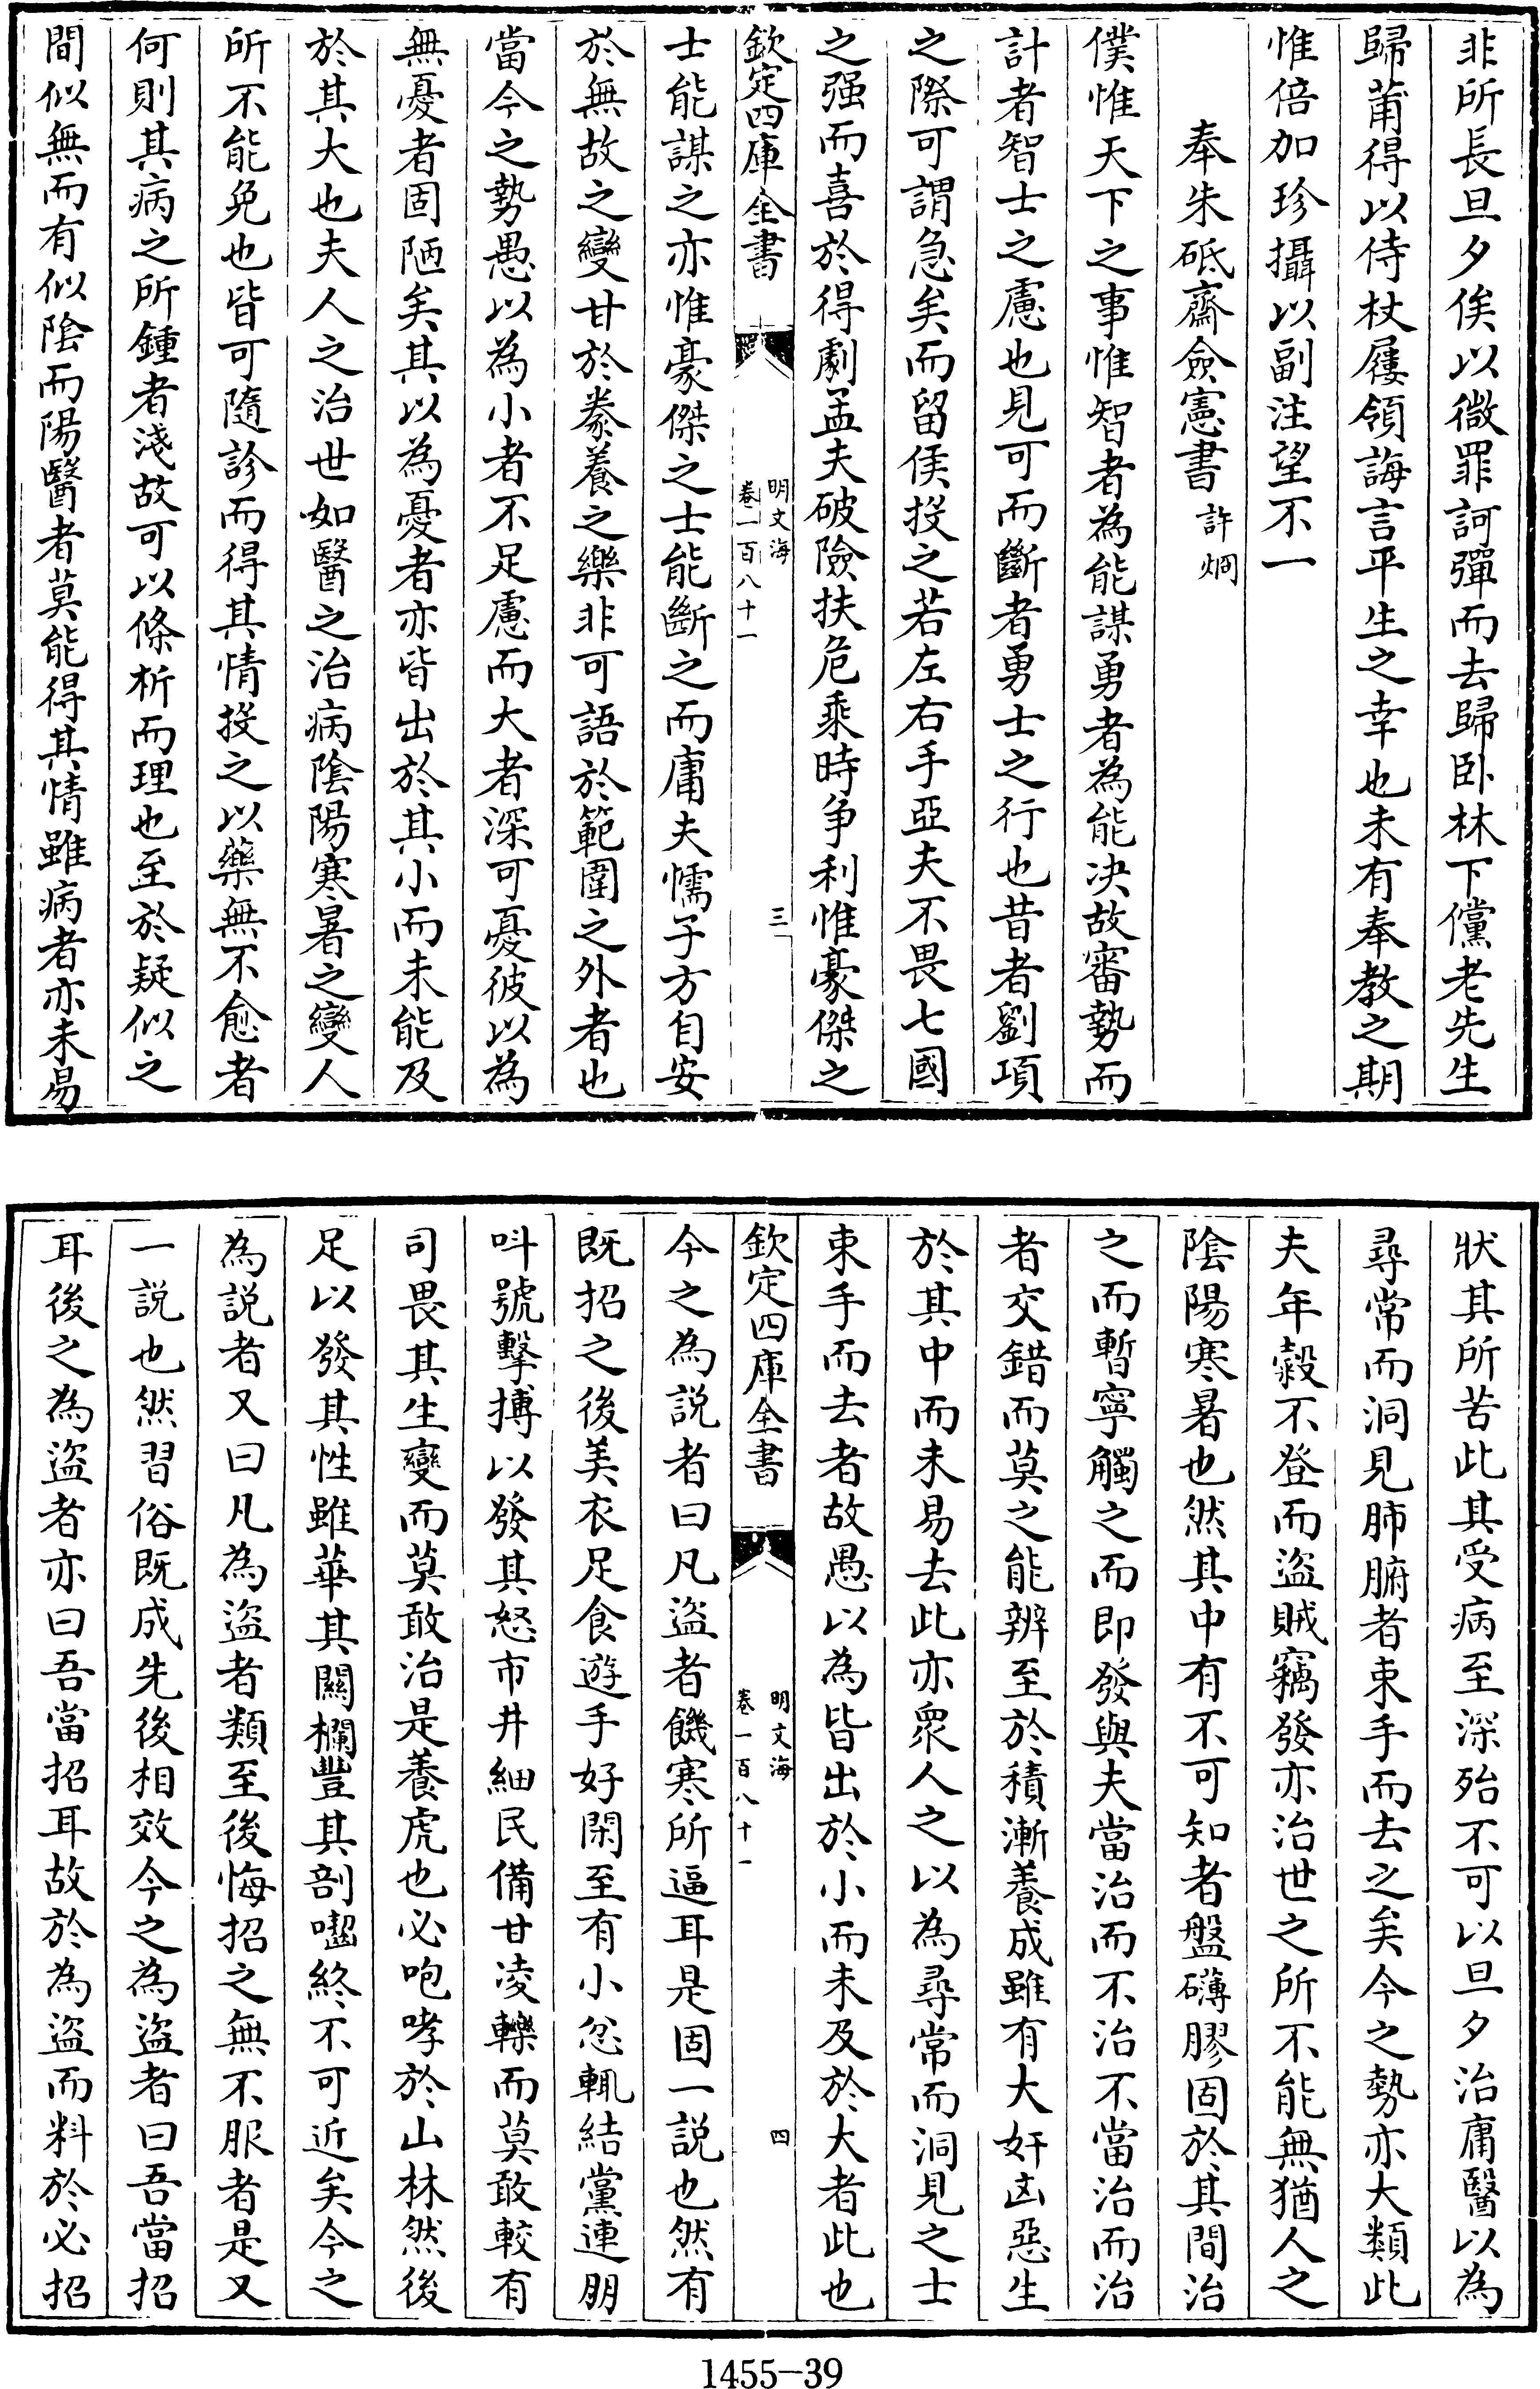 非所長旦夕俟以微罪訶彈而去歸卧林下儻老先生
歸莆得以侍杖屨領誨言平生之幸也未有奉教之期
惟倍加珍攝以副注望不一
奉朱砥齋僉憲書 許炯
僕惟天下之事惟智者為能謀勇者為能决故審勢而
計者智士之慮也見可而斷者勇士之行也昔者劉項
之際可謂急矣而留侯投之若左右手亞夫不畏七國
之强而喜於得劇孟夫破險扶危乘時争利惟豪傑之
欽定四庫全書
明文海
卷一百八十一
三
士能謀之亦惟豪傑之士能斷之而庸夫懦子方自安
於無故之變甘於豢養之樂非可語於範圍之外者也
當今之勢愚以為小者不足慮而大者深可憂彼以為
無憂者固陋矣其以為憂者亦皆出於其小而未能及
於其大也夫人之治世如醫之治病陰陽寒暑之變人
所不能免也皆可隨診而得其情投之以藥無不愈者
何則其病之所鍾者淺故可以條析而理也至於疑似之
間似無而有似陰而陽醫者莫能得其情雖病者亦未易
狀其所苦此其受病至深殆不可以旦夕治庸醫以為
尋常而洞見肺腑者束手而去之矣今之勢亦大類此
夫年穀不登而盜賊竊發亦治世之所不能無猶人之
陰陽寒暑也然其中有不可知者盤礴膠固於其間治
之而暫寧觸之而即發與夫當治而不治不當治而治
者交錯而莫之能辨至於積漸養成雖有大奸凶惡生
於其中而未易去此亦衆人之以為尋常而洞見之士
束手而去者故愚以為皆出於小而未及於大者此也
欽定四庫全書
明文海
卷一百八十一
四
今之為説者曰凡盜者饑寒所逼耳是固一説也然有
既招之後美衣足食遊手好閑至有小忿輒結黨連朋
叫號擊搏以發其怒市井細民備甘凌轢而莫敢較有
司畏其生變而莫敢治是養虎也必咆哮於山林然後
足以發其性雖華其闌欄豐其剖㘐終不可近矣今之
為説者又曰凡為盜者類至後悔招之無不服者是又
一説也然習俗既成先後相效今之為盜者曰吾當招
耳後之為盜者亦曰吾當招耳故於為盜而料於必招
1455-39